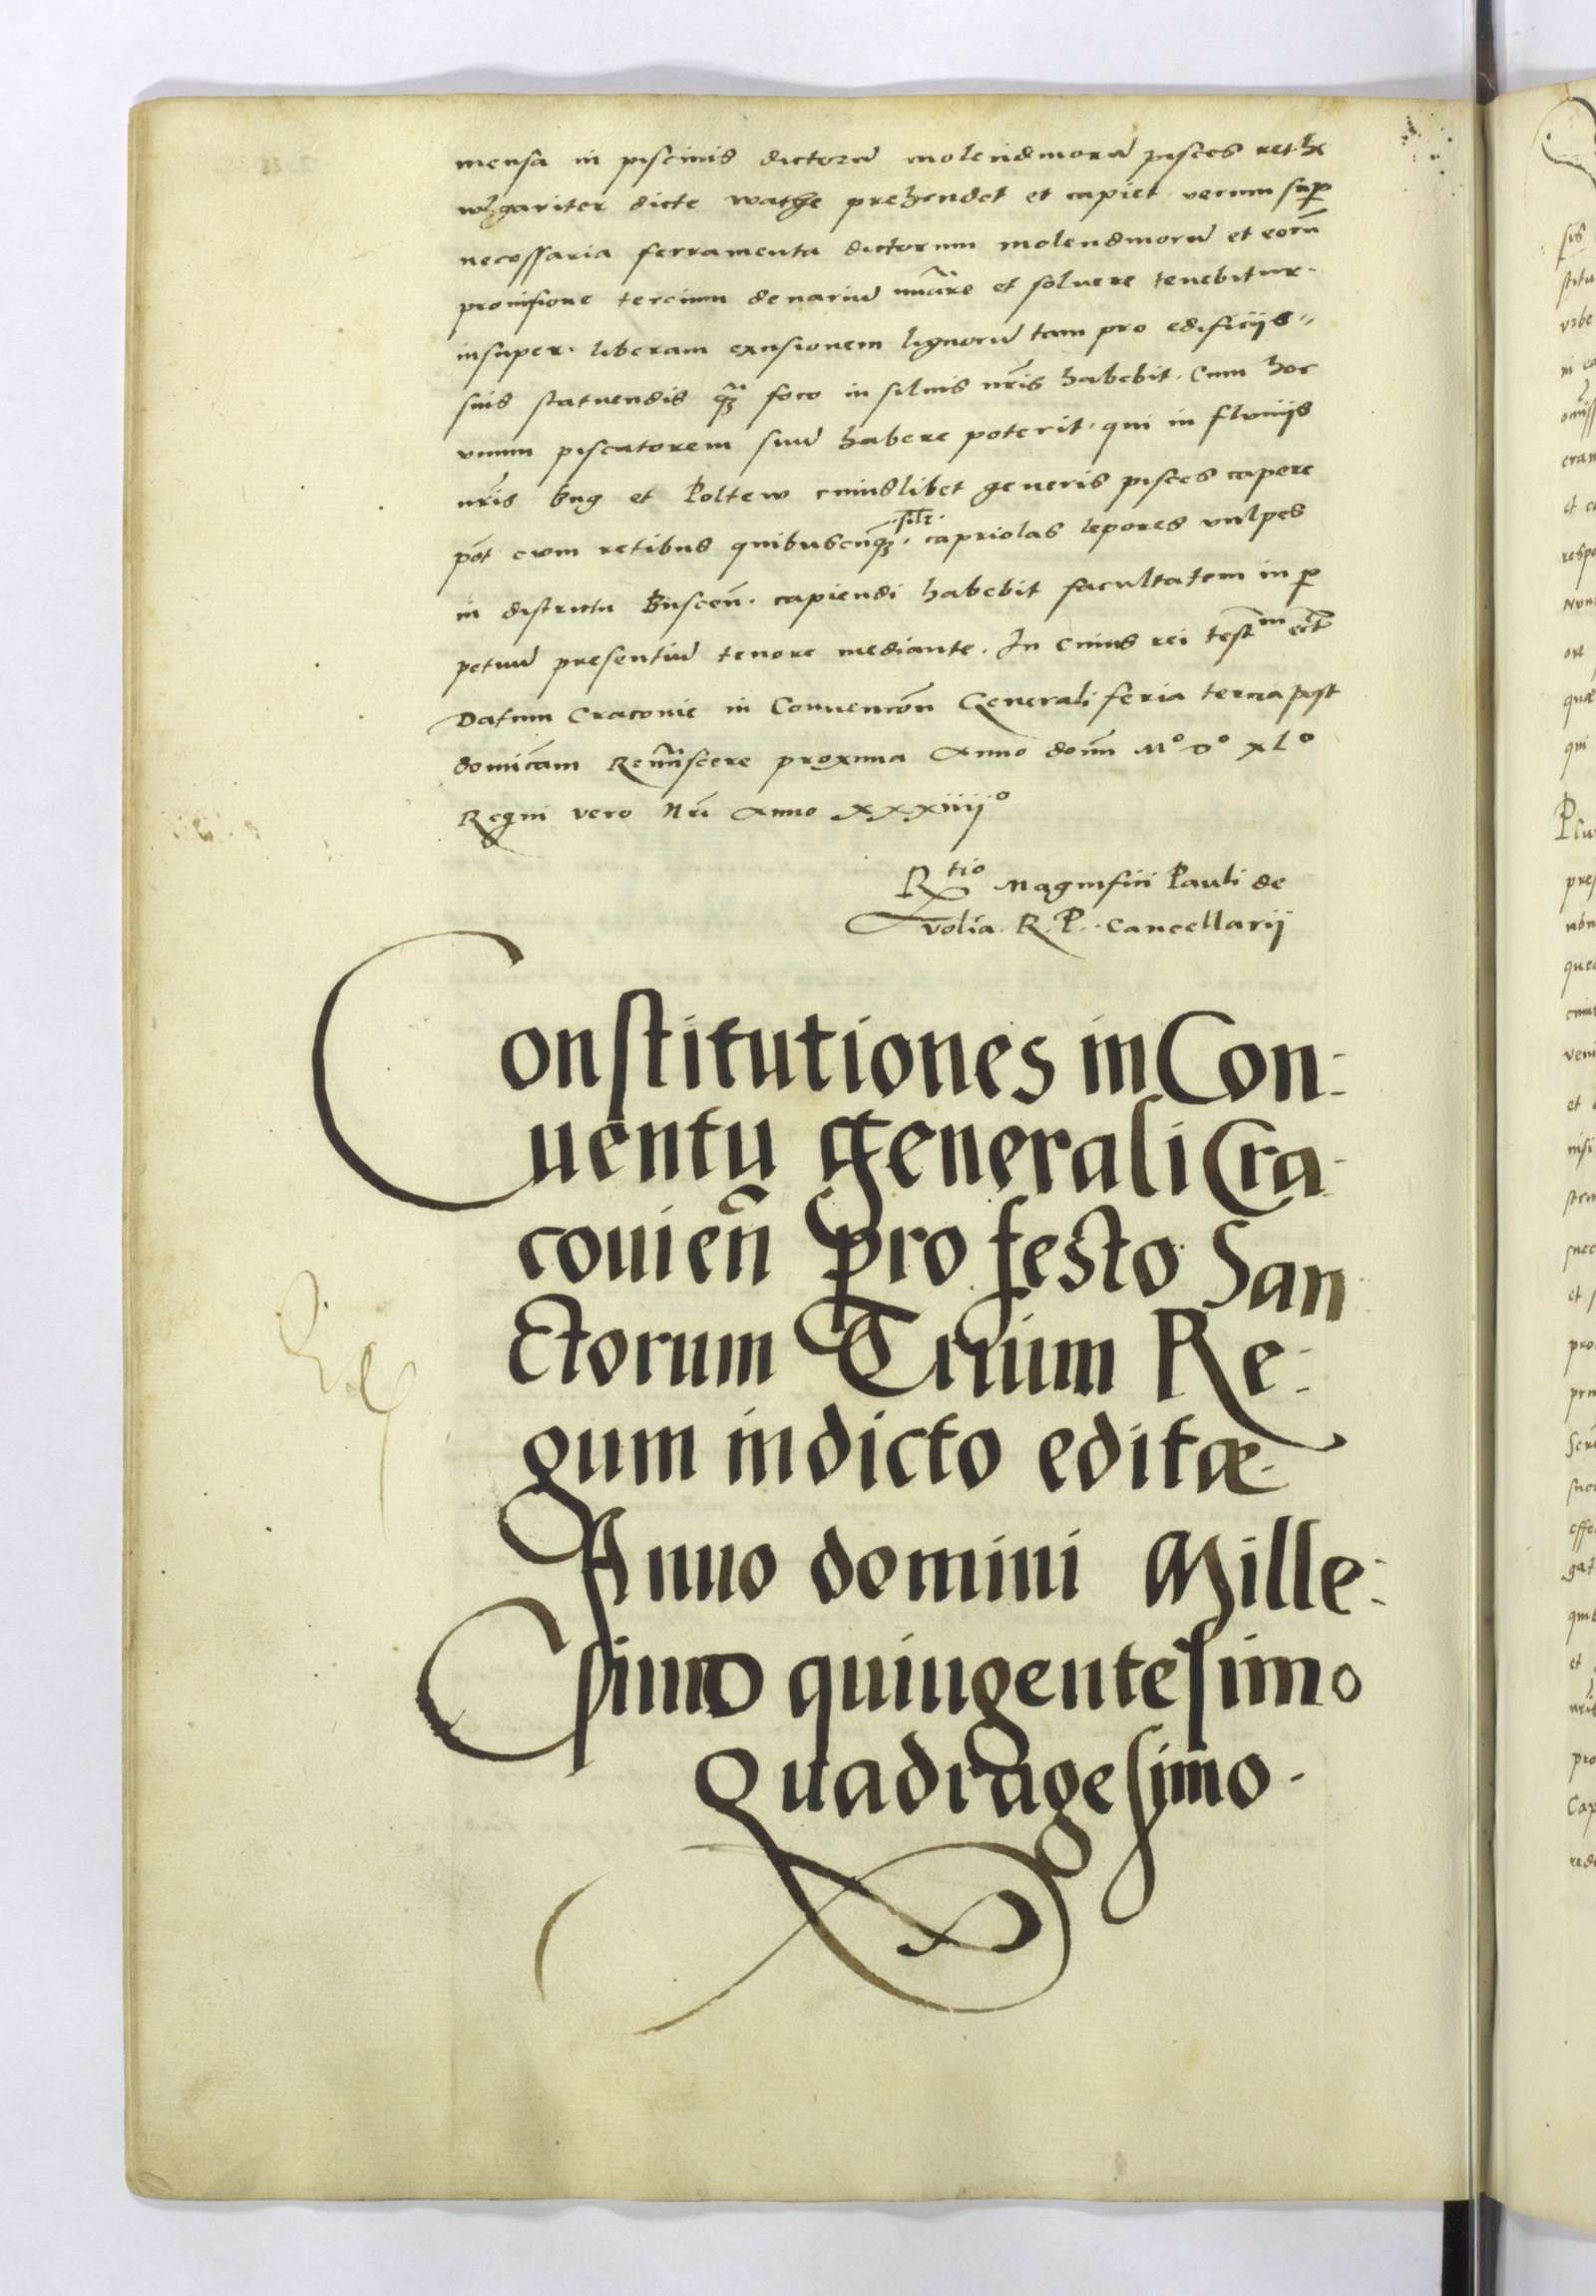 mensa in piscinis dictorũ molendinorũ pisces rethe
wlgariter dicte wathe prehendet et capiet verum sup
necessaria ferramenta dictorum molendinorũ et eorũ
prouisione tercium denariũ nũare et soluere tenebitur.
insuper. liberam exusionem lignorũ tam pro edificijs
suis statuendis q̃ foco in siluis nr̃is habebit. Cum hoc
vnum piscatorem suũ habere poterit. qui in fluuijs
nr̃is Bug et Poltew cuiuslibet generis pisces capere
põt cum retibus quibuscunq̃. silr. capriolas lepores vulpes
in districtu Buscen̄. capiendi habebit facultatem in p
petuũ presentiũ tenore mediante. In cuius rei testm̄
Datum Cracouie in Conuencõn Generali feria tercia post
domicam Remiscere proxima Anno domi Mº Dº xlº
Regni vero Nri Anno xxxiiijº
Rtio Magnifici Pauli de
volia. R. P. Cancellarij
Constitutiones in Con-
uentu generali Cra-
couien̄ pro festo San
ctorum Trium Re-
gum indicto editæ
Anno domini Mille-
simo quingentesimo
Quadragesimo.